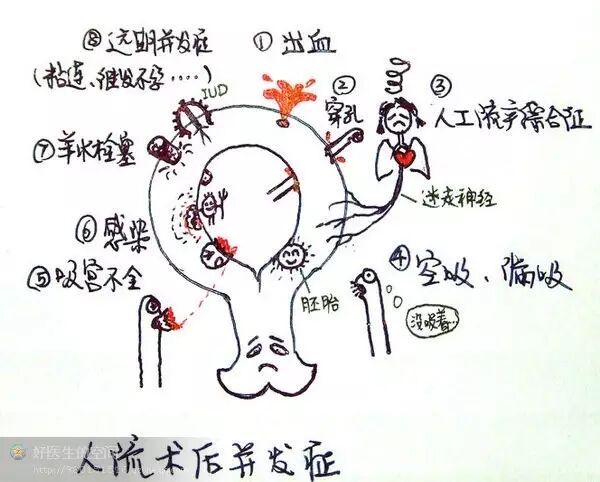 ⑧远期并发症
(粘连、继发不孕····)
①出血
IUD
②
穿孔
③
人工流产综合征
⑦羊水栓塞
迷走神经
⑥感染
⑤吸宫不全
④空吸、漏吸
胚胎
没吸着…
人流术后并发症
好医生的空间